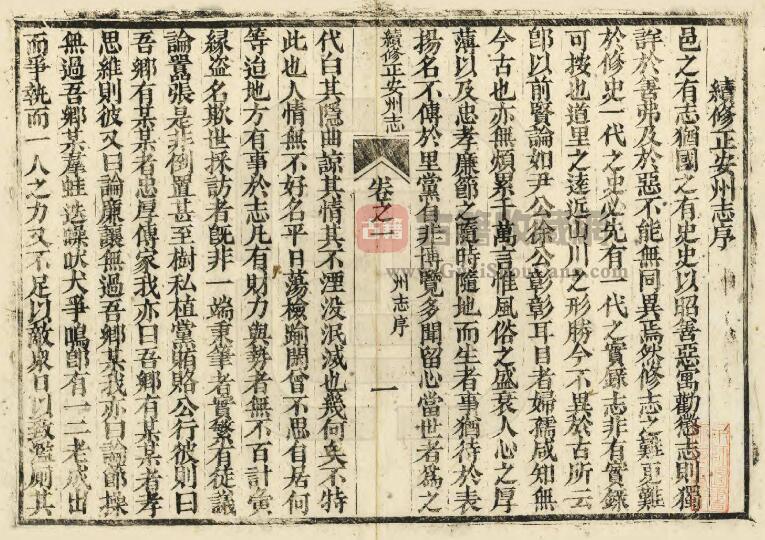 續修正安州志序
邑之有志猶國之有史史以昭善惡寓勸懲志則獨
詳於善弗及於惡不能無同異焉然修志之難更難
於修史一代之史必先有一代之實錄志非有實錄
可按也道里之逹远山川之形勝今不異於古所云
卽以前賢論如尹公徐公彰彰耳目者婦孺咸知無
今古也亦無煩累千萬言惟風俗之盛衰人心之厚
薄以及忠孝廉節之隨時隨地而生者事猶待於表
揚名不傳於里黨自非博覽多聞留心當世者爲之
續修正安州志
卷之
州志序
一
代白其隱曲諒其情其不湮没泯滅也幾何矣不特
此也人情無不好名平日蕩檢踰閑曾不思有居何
等迨地方有事於志凡有財力與埶者無不百計夤
緣盗名欺世採訪者旣非一端秉筆者實繁有徒議
論囂張是非倒置甚至樹私植黨賄賂公行彼則曰
吾鄉有某某者忠厚傳家我亦曰吾鄉有某某者孝
思維則彼又曰論廉讓無過吾鄉某我亦曰論節操
無過吾鄉某羣蛙迭噪吠犬爭鳴卽有一二老成出
而爭執而一人之力又不足以敵衆口以致濫厠其
古籍收藏
www.GuJiShouCang.com